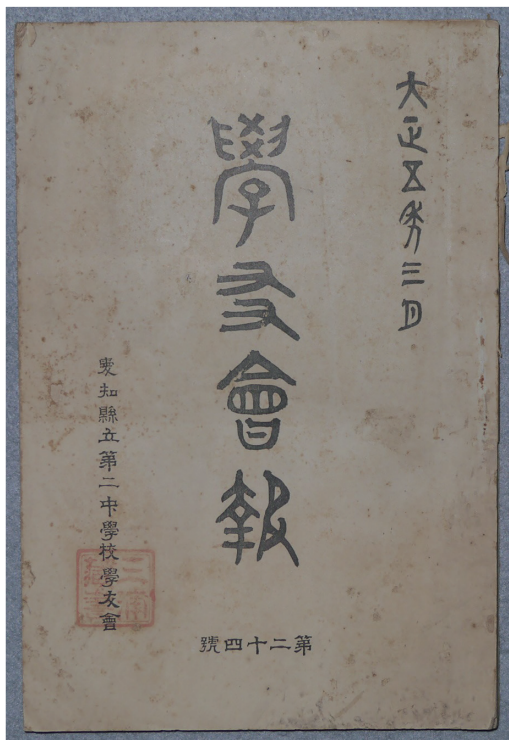 大正五秊三月
學友會報
愛知縣立第二中學校學友會
第二十四號